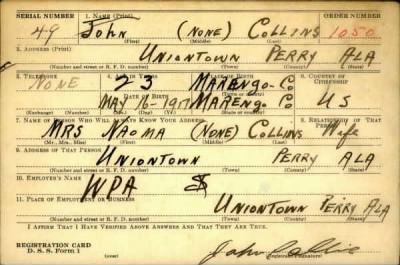 SERIAL NUMBER 1. NAME (Print) ORDER NUMBER
49 John (NONE) Collins 1050
(First) (Middle) (Last)
2. ADDRESS (Print)
UNIONTOWN PERRY ALA
(Number and street or R. F. D. number) (Town) (County) (State)
3. TELEPHONE 4. AGE IN YEARS 5. PLACE OF BIRTH 6. COUNTRY OF CITIZENSHIP
NONE 23 MARENGO-Co
DATE OF BIRTH
MAY 16-191 MARENGO Co US
(Exchange) (Number) (Mo.) (Day) (Yr.) (State or country)
7. NAME OF PERSON WHO WILL ALWAYS KNOW YOUR ADDRESS 8. RELATIONSHIP OF THAT PERSON
MRS NAOMA (NONE) Collins Wife
(Mr., Mrs., Miss) (First) (Middle) (Last)
9. ADDRESS OF THAT PERSON
UNIONTOWN PERRY ALA
(Number and street or R. F. D. number) (Town) (County) (State)
10. EMPLOYER'S NAME
WPA
11. PLACE OF EMPLOYMENT OR BUSINESS
UNIONTOWN PERRY ALA
(Number and street or R. F. D. number) (Town) (County) (State)
I AFFIRM THAT I HAVE VERIFIED ABOVE ANSWERS AND THAT THEY ARE TRUE.
REGISTRATION CARD
D. S. S. Form 1 John Collins
(Registrant's signature)